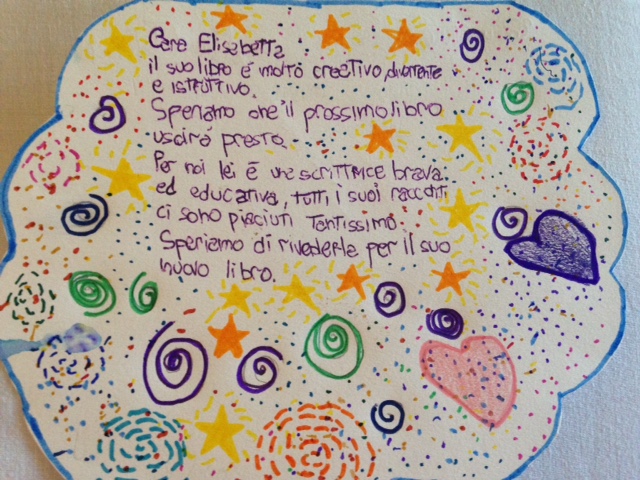 Care Elisabetta
il suo libro é molto creativo, divertente
e istruttivo.
Speriamo che il prossimo libro
uscirá presto.
Per noi lei é una scrittrice brava
ed educativa, tutti i suoi racconti
ci sono piaciuti Tantissimo.
Speriamo di rivederla per il suo
nuovo libro.